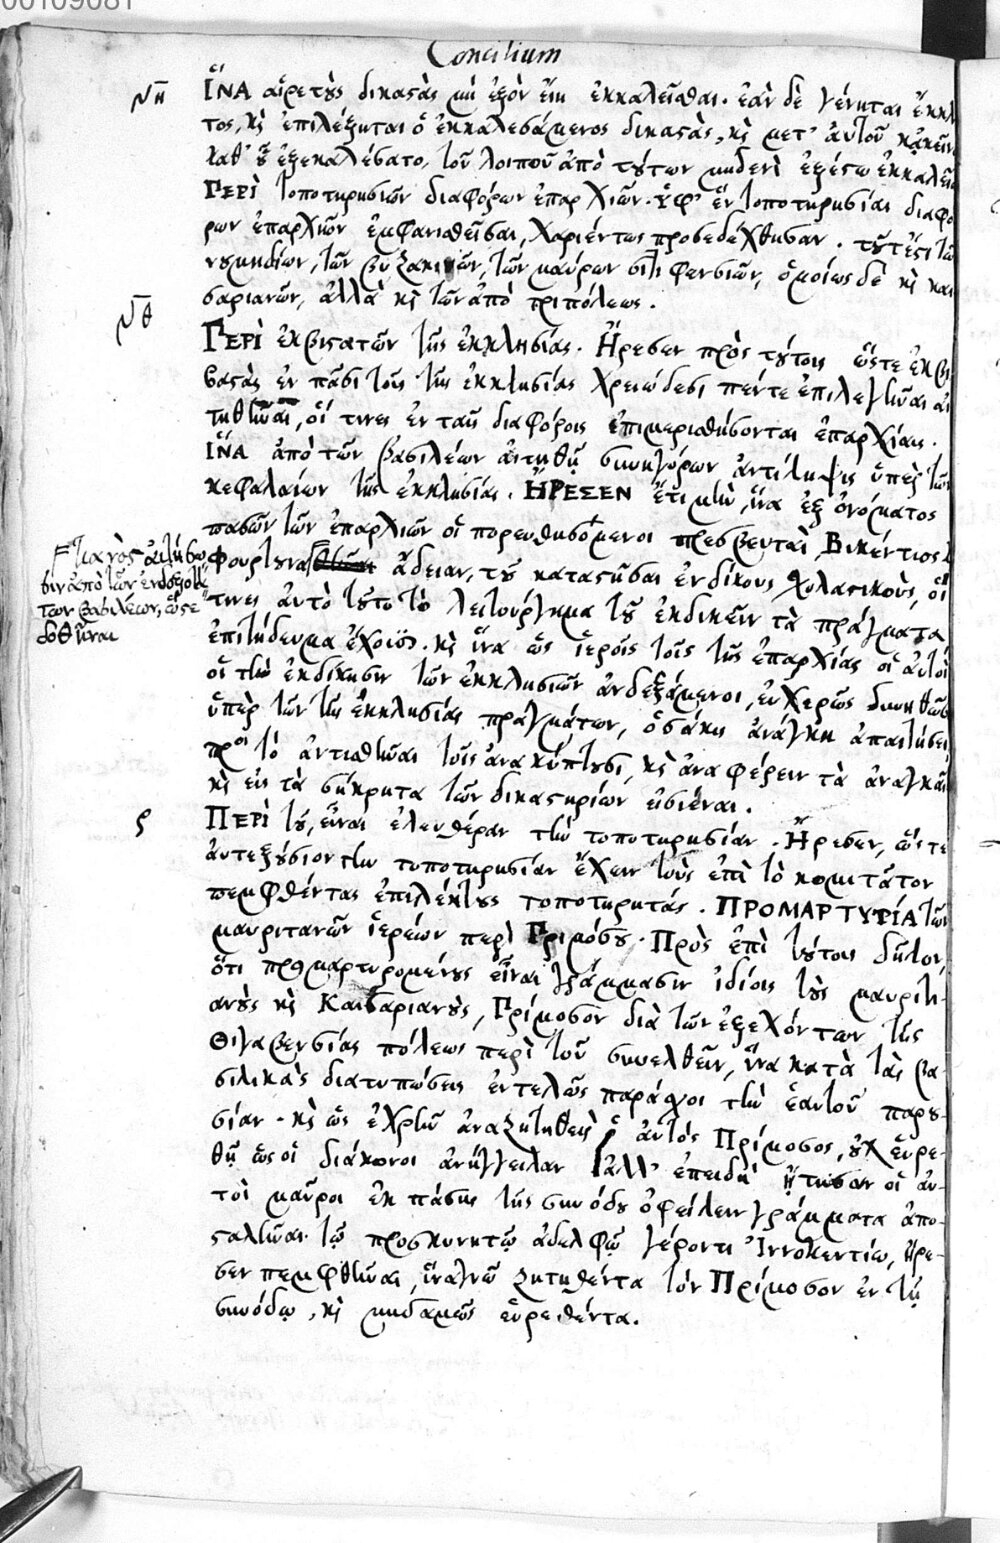 00109081
Concilium
ϟη ἽΝΑ αἱρετοὺς δικαστὰς μὴ ἐξὸν εἴη ἐκκαλεῖσθαι. ἐὰν δὲ γένηται ἔκκλη
τος, κὶ ἐπιλέξηται ὁ ἐκκαλεσάμενος δικαστὰς, κὶ μετ' αὐτοῦ κἀκεῖν
καθ' οὗ ἐξεκαλέσατο, τοῦ λοιποῦ ἀπὸ τούτων μηδενὶ ἐξέστω ἐκκαλεῖσ
ΠΕΡὶ τοποτηρησιῶν διαφόρων ἐπαρχιῶν. ἐφ' ἓν τοποτηρησίαι διαφό
ρων ἐπαρχιῶν ἐμφανισθεῖσαι, χαριέντως προσεδέχθησαν. τουτέστι τῶν
νουμηδίων, τῶν βυζακινῶν, τῶν μαύρων σιτιφενσιῶν, ὁμοίως δὲ κὶ και
σαριανῶν, ἀλλὰ κὶ τῶν ἀπὸ τριπόλεως.
ϟθ ΠΕΡὶ ἐκβιβαστῶν τῆς ἐκκλησίας. Ἤρεσεν πρὸς τούτοις ὥστε ἐκβι
βαστὰς ἐν πᾶσι τοῖς τῆς ἐκκλησίας χρειώδεσι πέντε ἐπιλεγῆναι αἰ
τηθῆναι, οἵ τινες ἐν ταῖς διαφόροις ἐπιμερισθήσονται ἐπαρχίαις.
ἽΝΑ ἀπὸ τῶν βασιλέων αἰτηθῇ συνηγόρων ἀντίληψις ὑπὲρ τῶν
κεφαλαίων τῆς ἐκκλησίας. ἬΡΕΣΕΝ ἔτι μὴν, ἵνα ἐξ ὀνόματος
πασῶν τῶν ἐπαρχιῶν οἱ πορευθησόμενοι πρεσβευταὶ Βικέντιος
Φουρτουνα ἄδειαν, τοῦ καταστῆσαι ἐνδίκους σχολαστικοὺς, οἵ
τινες αὐτὸ τοῦτο τὸ λειτούργημα τοῦ ἐκδικεῖν τὰ πράγματα
ἐπιτήδευμα ἔχουσιν. κὶ ἵνα ὡς ἱεροῖς τοῖς τῆς ἐπαρχίας οἱ αὐτοὶ
οἱ τὴν ἐκδίκησιν τῶν ἐκκλησιῶν ἀνδεξάμενοι, εὐχερῶς δυνηθῶσι
ὑπὲρ τῶν τῆς ἐκκλησίας πραγμάτων, ὁσάκις ἀνάγκη ἀπαιτήσει,
πρὸς τὸ ἀντιστῆναι τοῖς ἀνακύπτουσι, κὶ ἀναφέρειν τὰ ἀναγκαῖα
κὶ εἰς τὰ σήκρητα τῶν δικαστηρίων εἰσιέναι.
Γιανὸς αἰτήσω
σιν ἀπὸ τῶν ἐνδοξοτά
των βασιλέων, ὥστε
δοθῆναι
ρ ΠΕΡὶ τοῦ, εἶναι ἐλευθέραν τὴν τοποτηρησίαν. Ἤρεσεν, ὥστε
αὐτεξούσιον τὴν τοποτηρησίαν ἔχειν τοὺς ἐπὶ τὸ κομιτᾶτον
πεμφθέντας ἐπιλέκτους τοποτηρητάς. ΠΡΟΜΑΡΤΥΡΊΑ τῶν
μαυριτανῶν ἱερέων περὶ Πριμόσου. Πρὸς ἐπὶ τούτοις δῆλον,
ὅτι προμαρτυρομένους εἶναι γράμμασιν ἰδίοις τοὺς μαυριτι-
ανοὺς κὶ Καισαριανοὺς, Πρίμοσον διὰ τῶν ἐξεχόντων τῆς
Θιγαβενσίας πόλεως περὶ τοῦ συνελθεῖν, ἵνα κατὰ τὰς βα-
σιλικὰς διατυπώσεις ἐντελῶς παράσχοι τὴν ἑαυτοῦ παρου-
σίαν. κὶ ὡς ἐχρῆν ἀναζητηθεὶς ὁ αὐτός Πρίμοσος, οὐχ εὑρέ-
θη ὡς οἱ διάκονοι ἀνήγγειλαν ἀλλ' ἐπειδὴ ᾔτησαν οἱ αὐ-
τοὶ μαῦροι ἐκ πάσης τῆς συνόδου ὀφείλειν γράμματα ἀπο-
σταλῆναι τῷ προσκυνητῷ ἀδελφῷ γέροντι Ἰννοκεντίῳ, ἤρε-
σεν πεμφθῆναι, ἵνα γνῷ ζητηθέντα τὸν Πρίμοσον ἐν τῇ
συνόδῳ, κὶ μηδαμῶς εὑρεθέντα.